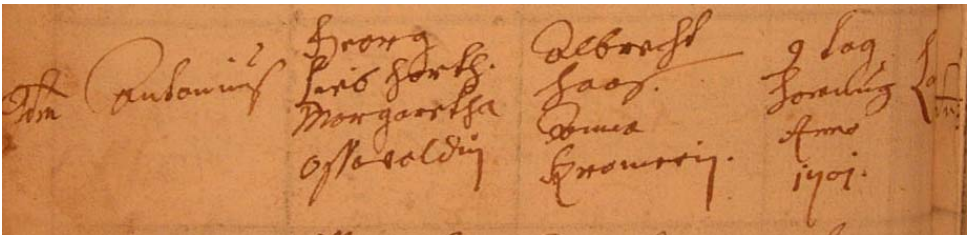 Antonius
Georg
Liebharth.
Margaretha
Ossewaldin
Albrecht
Haas.
Anna
Kromerin.
9 tag
Hornung
Anno
1701.